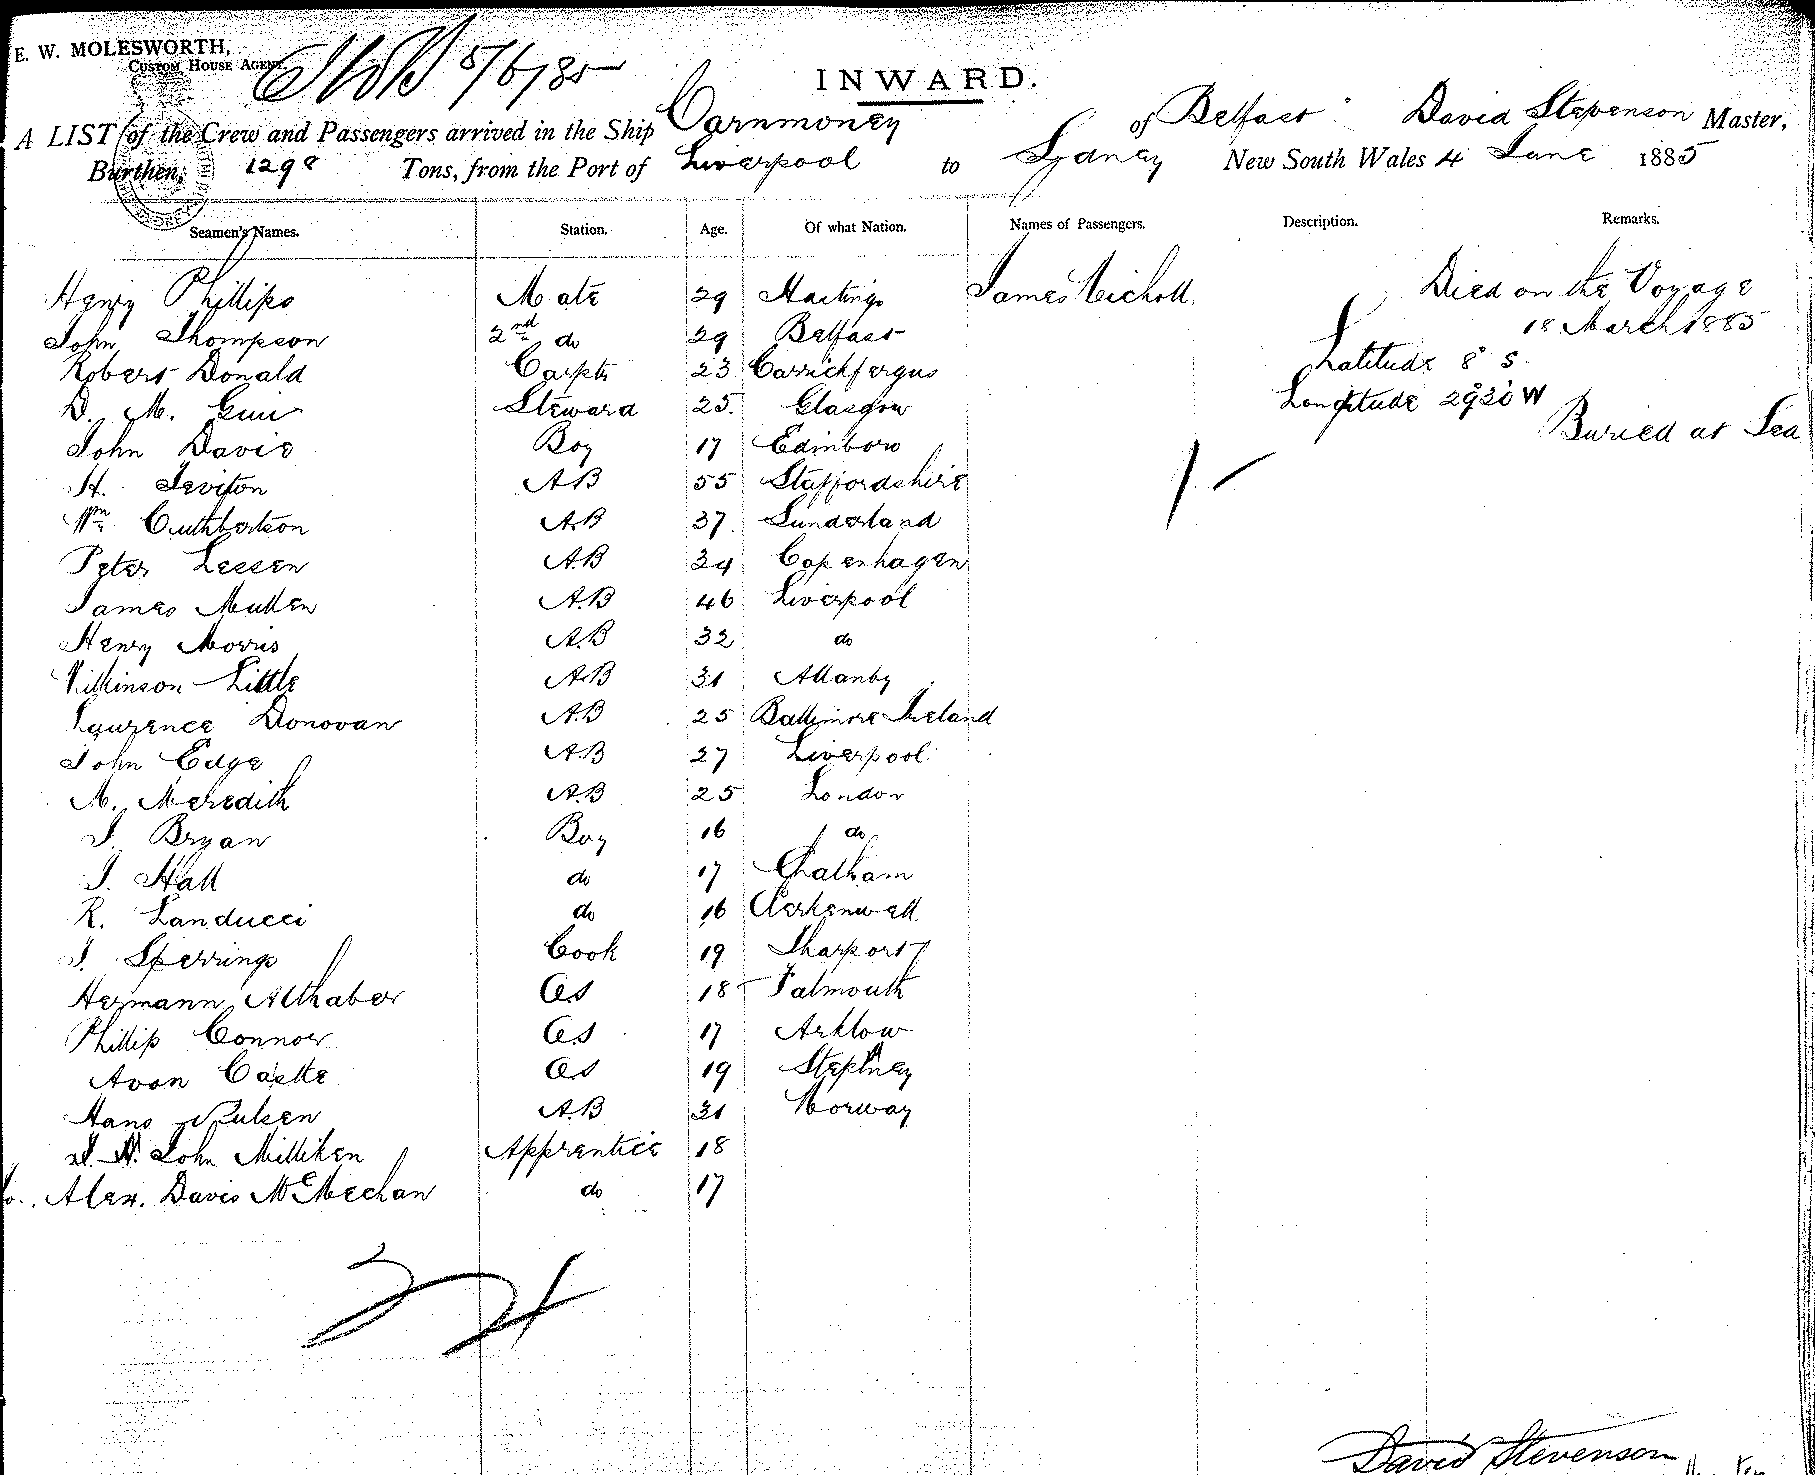 E. W. MOLESWORTH,
CUSTOM HOUSE AGENT.
5/6/85
INWARD.
A LIST of the Crew and Passengers arrived in the Ship Carnmoney of Belfast David Stevenson Master,
Burthen, 1298 Tons, from the Port of Liverpool to Sydney New South Wales 4 June 1885
Seamen's Names. Station. Age. Of what Nation. Names of Passengers. Description. Remarks.
Henry Phillips Mate 29 Hastings James Nicholl Died on the Voyage
18 March 1885
John Thompson 2nd do 29 Belfast
Latitude 8° S
Robert Donald Carptr 23 Carrickfergus
Longitude 29° 20' W
D. M. Steward 25 Glasgow
Buried at Sea
John Davis Boy 17 Edinboro
H. Leviton AB 55 Staffordshire
Wm Cuthbertson AB 37 Sunderland
Peter Lessen AB 34 Copenhagen
James Mullen AB 46 Liverpool
Henry Morris AB 32 do
Wilkinson Little AB 31 Allanby
Laurence Donovan AB 25 Baltimore Ireland
John Edge AB 27 Liverpool
M. Meredith AB 25 London
J. Bryan Boy 16 do
J. Hall do 17 Chatham
R. Landucci do 16 Clerkenwell
J. Sperrings Cook 19 Sharport
Hermann Althaber OS 18 Falmouth
Phillip Connor OS 17 Arklow
Avon Castle OS 19 Stephney
Hans Pulsen AB 31 Norway
John Milliken Apprentice 18
Alex. Davis McMechan do 17
24
David Stevenson